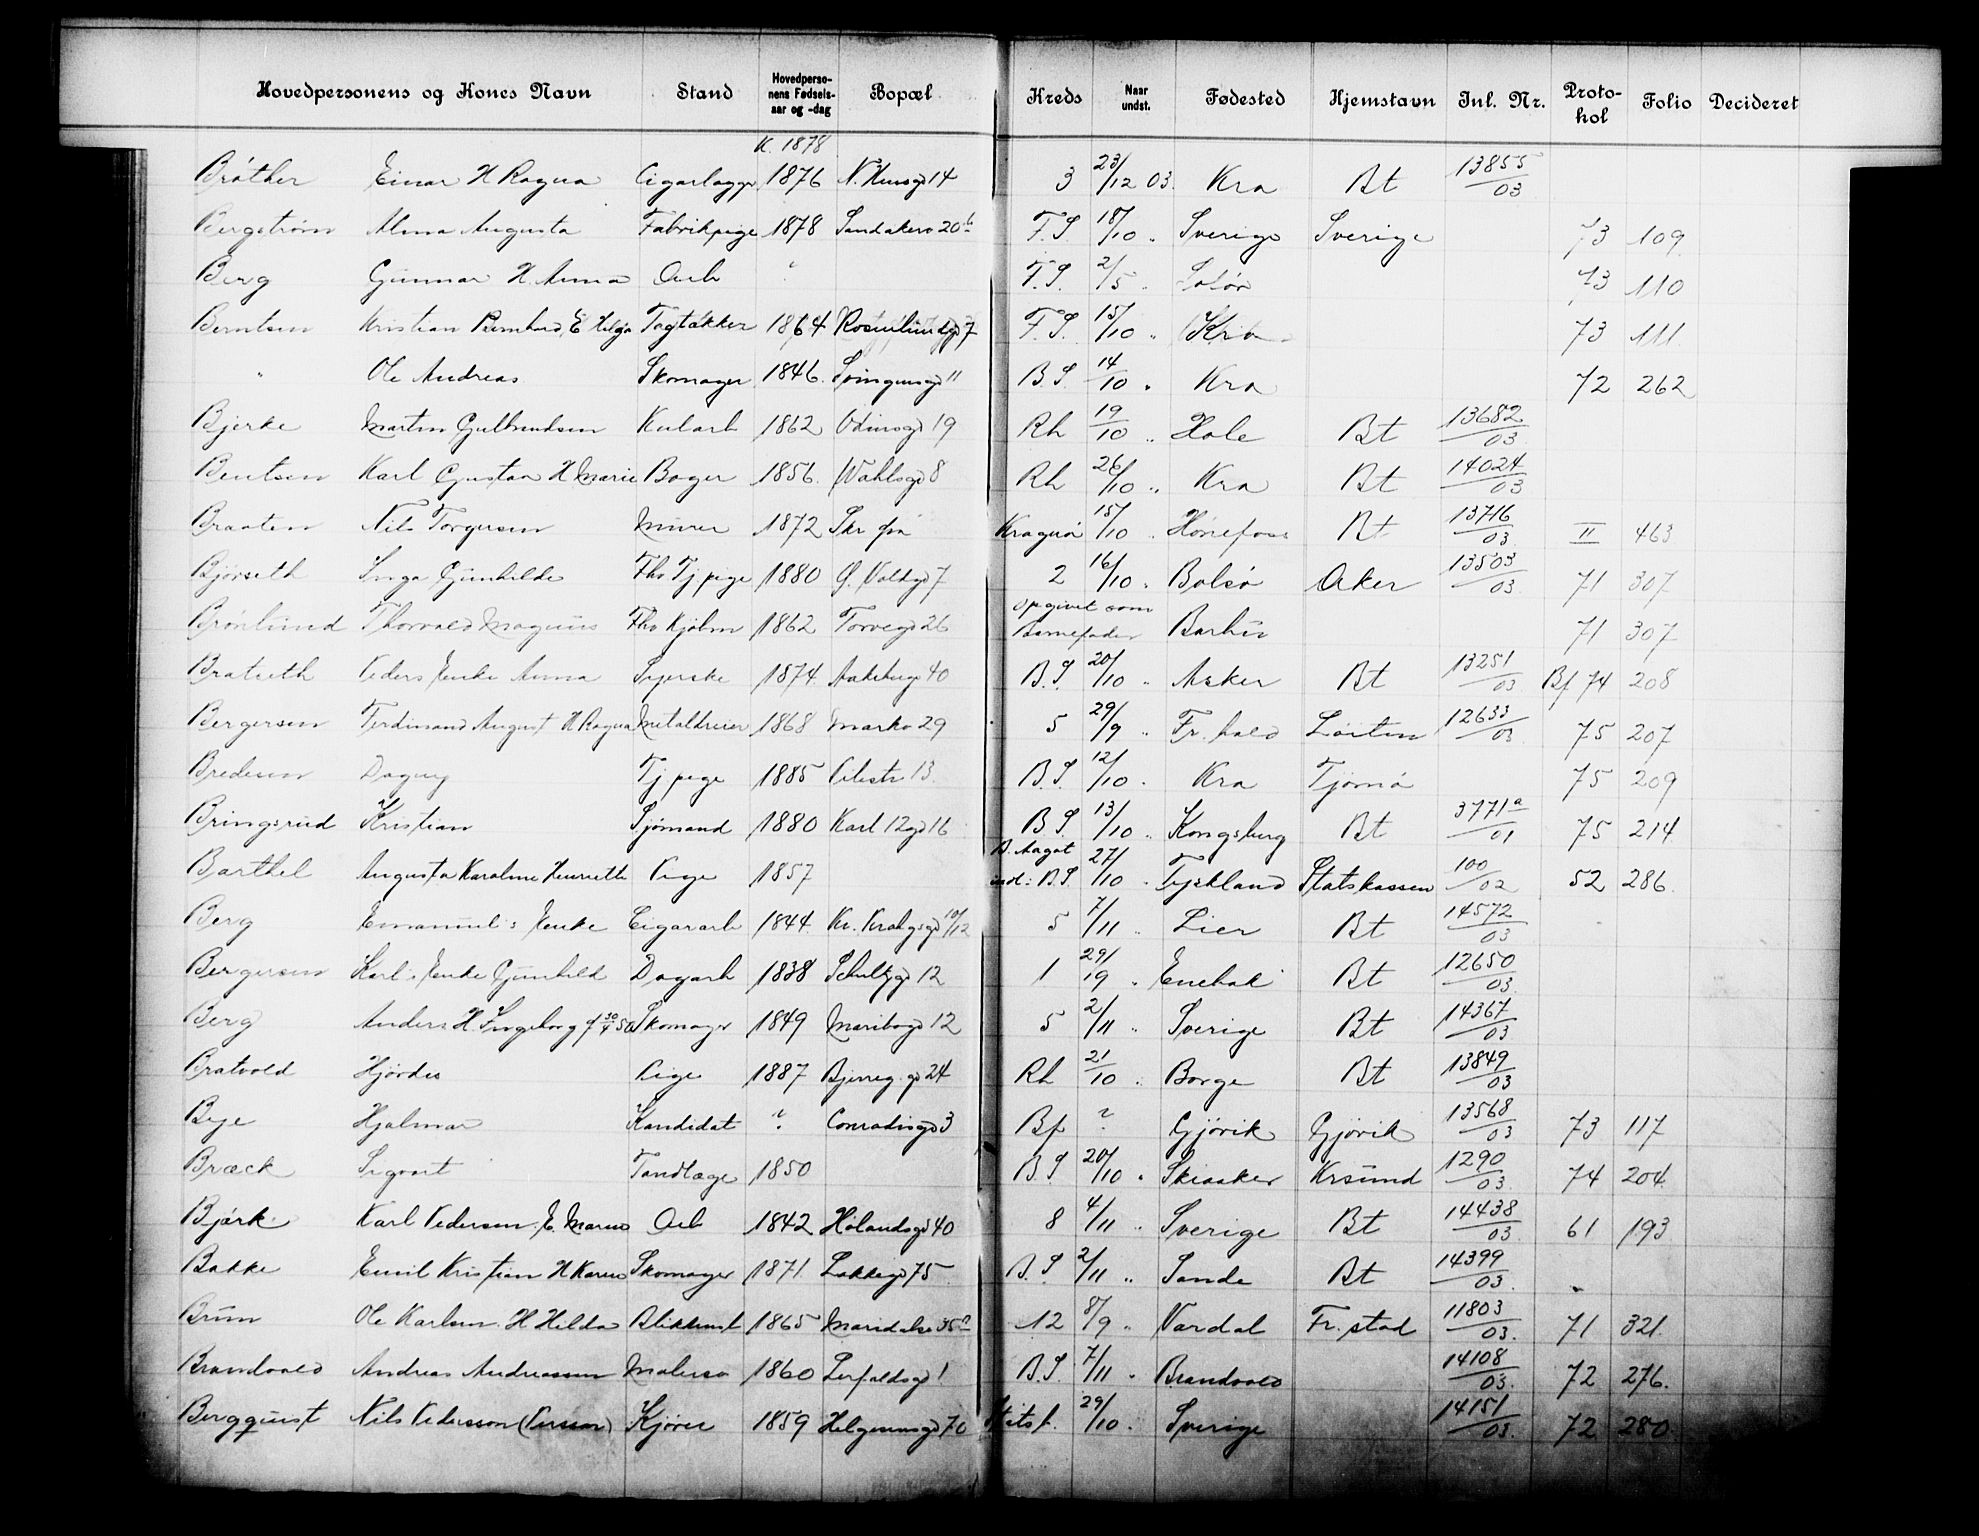 Hovedpersonens og Kones Navn Stand Hovedpersonens Fødselsaar og -dag Bopæl Kreds Naar undst. Fødested Hjemstavn Inl. Nr. Protokol Folio Decideret
K. 1878
Bråther Einar H Ragna 1876 14 3 23/12 03. Kra Bt 13855/03
Bergstrøm Alma Augusta Fabrikpige 1878 F.S. 18/10 " Sverige Sverige 73 109
Berg Gunnar H. Anna Arb ? F.S. 2/5 " Solør 73 110
Berntsen Kristian Bernhard E Helga Tagtækker 1864 Rosenlundgd 7 F.S. 15/10 " Kra 73 111
" Ole Andreas Skomager 1846. 11 B.S. 14/10 " Kra 72 262
Bjerke Martin Gulbrandsen Kularb 1862 Odinsgd 19 Rh 19/10 " Hole Bt 13682/03
Bentsen Karl Gustav H Marie Bager 1856. Wahlsgd 8 Rh 26/10 " Kra Bt 14024/03
Braaten Nils Torgersen Murer 1872 Kragerø 15/10 " Hønefoss Bt 13716/03 II 463
Bjørseth Inga Gunhilde Fhv Tj.pige 1880 7 2 16/10 " Bolsø Aker 13503/03 71 307
Brönlund Thorvald Magnus 1862 Torvegd 26 opgivet som Barnefader Barbu 71 307
Bratseth Peders Enke Anna Syerske 1874. Aakebergv 40 B.S. 20/10 " Asker Bt 13251/03 Bf 74 208
Bergersen Ferdinand August H Ragna Metaldreier 1868 Markv 29 5 29/9 " Fr.hald Løiten 12633/03 75 207
Bredesen Dagny Tj.pige 1885 Pilestr 13. B.S. 12/10 " Kra Tjømø 75 209
Bringsrud Kristian Sjömand 1880 Karl 12gd 16 B.S. 13/10 " Kongsberg Bt 3771a/01 75 214
Barthel Augusta Karoline Henriette Pige 1857 B. Aagot ind: B.S. 27/10 " Tyskland Statskassen 100/02 52 286
Berg Emanuel's Enke Cigararb 1844. Kr. Kroghsgd 10/12 5 7/11 " Lier Bt 14572/03
Bergersen Karl's Enke Gunhild Dagarb 1838 Schultzgd 12 1 29/9 " Enebak Bt 12650/03
Berg Anders H Ingeborg f 30/4 50 Skomager 1849 Maribogd 12 5 2/11 " Sverige Bt 14367/03
Bratvold Hjørdis Pige 1887 Bjerreg.gd 24 Rh 21/10 " Borge Bt 13849/03
Bye Hjalmar Kandidat ? Conradisgd 3 Bf ? Gjøvik Gjøvik 13568/03 73 117
Bræck Sigvart Tandlæge 1850 B.S 20/10 " Skiaaker Krsund 1290/03 74 204
Björk Karl Pedersen E. Maren Arb 1842 Hølandsgd 40 8 4/11 " Sverige Bt 14438/03 61 193
Bakke Emil Kristian H Karen Skomager 1871 Lakkegd 75 B.S 2/11 " Sande Bt 14399/03
Brun Ole Karlsen H Hilda 1865 Maridalsv 35 12 8/9 " Vardal Fr.stad 11803/03. 71 321
Brandvold Andreas Andreassen Malersv 1860 Lerfaldsgd 1 B.S. 7/11 " Brandvold 14108/03. 72 276.
Bergquist Nils Pedersson (Persson) Kjører 1859 Helgesensgd 70 Statsk. 29/10 " Sverige 14151/03. 72 280